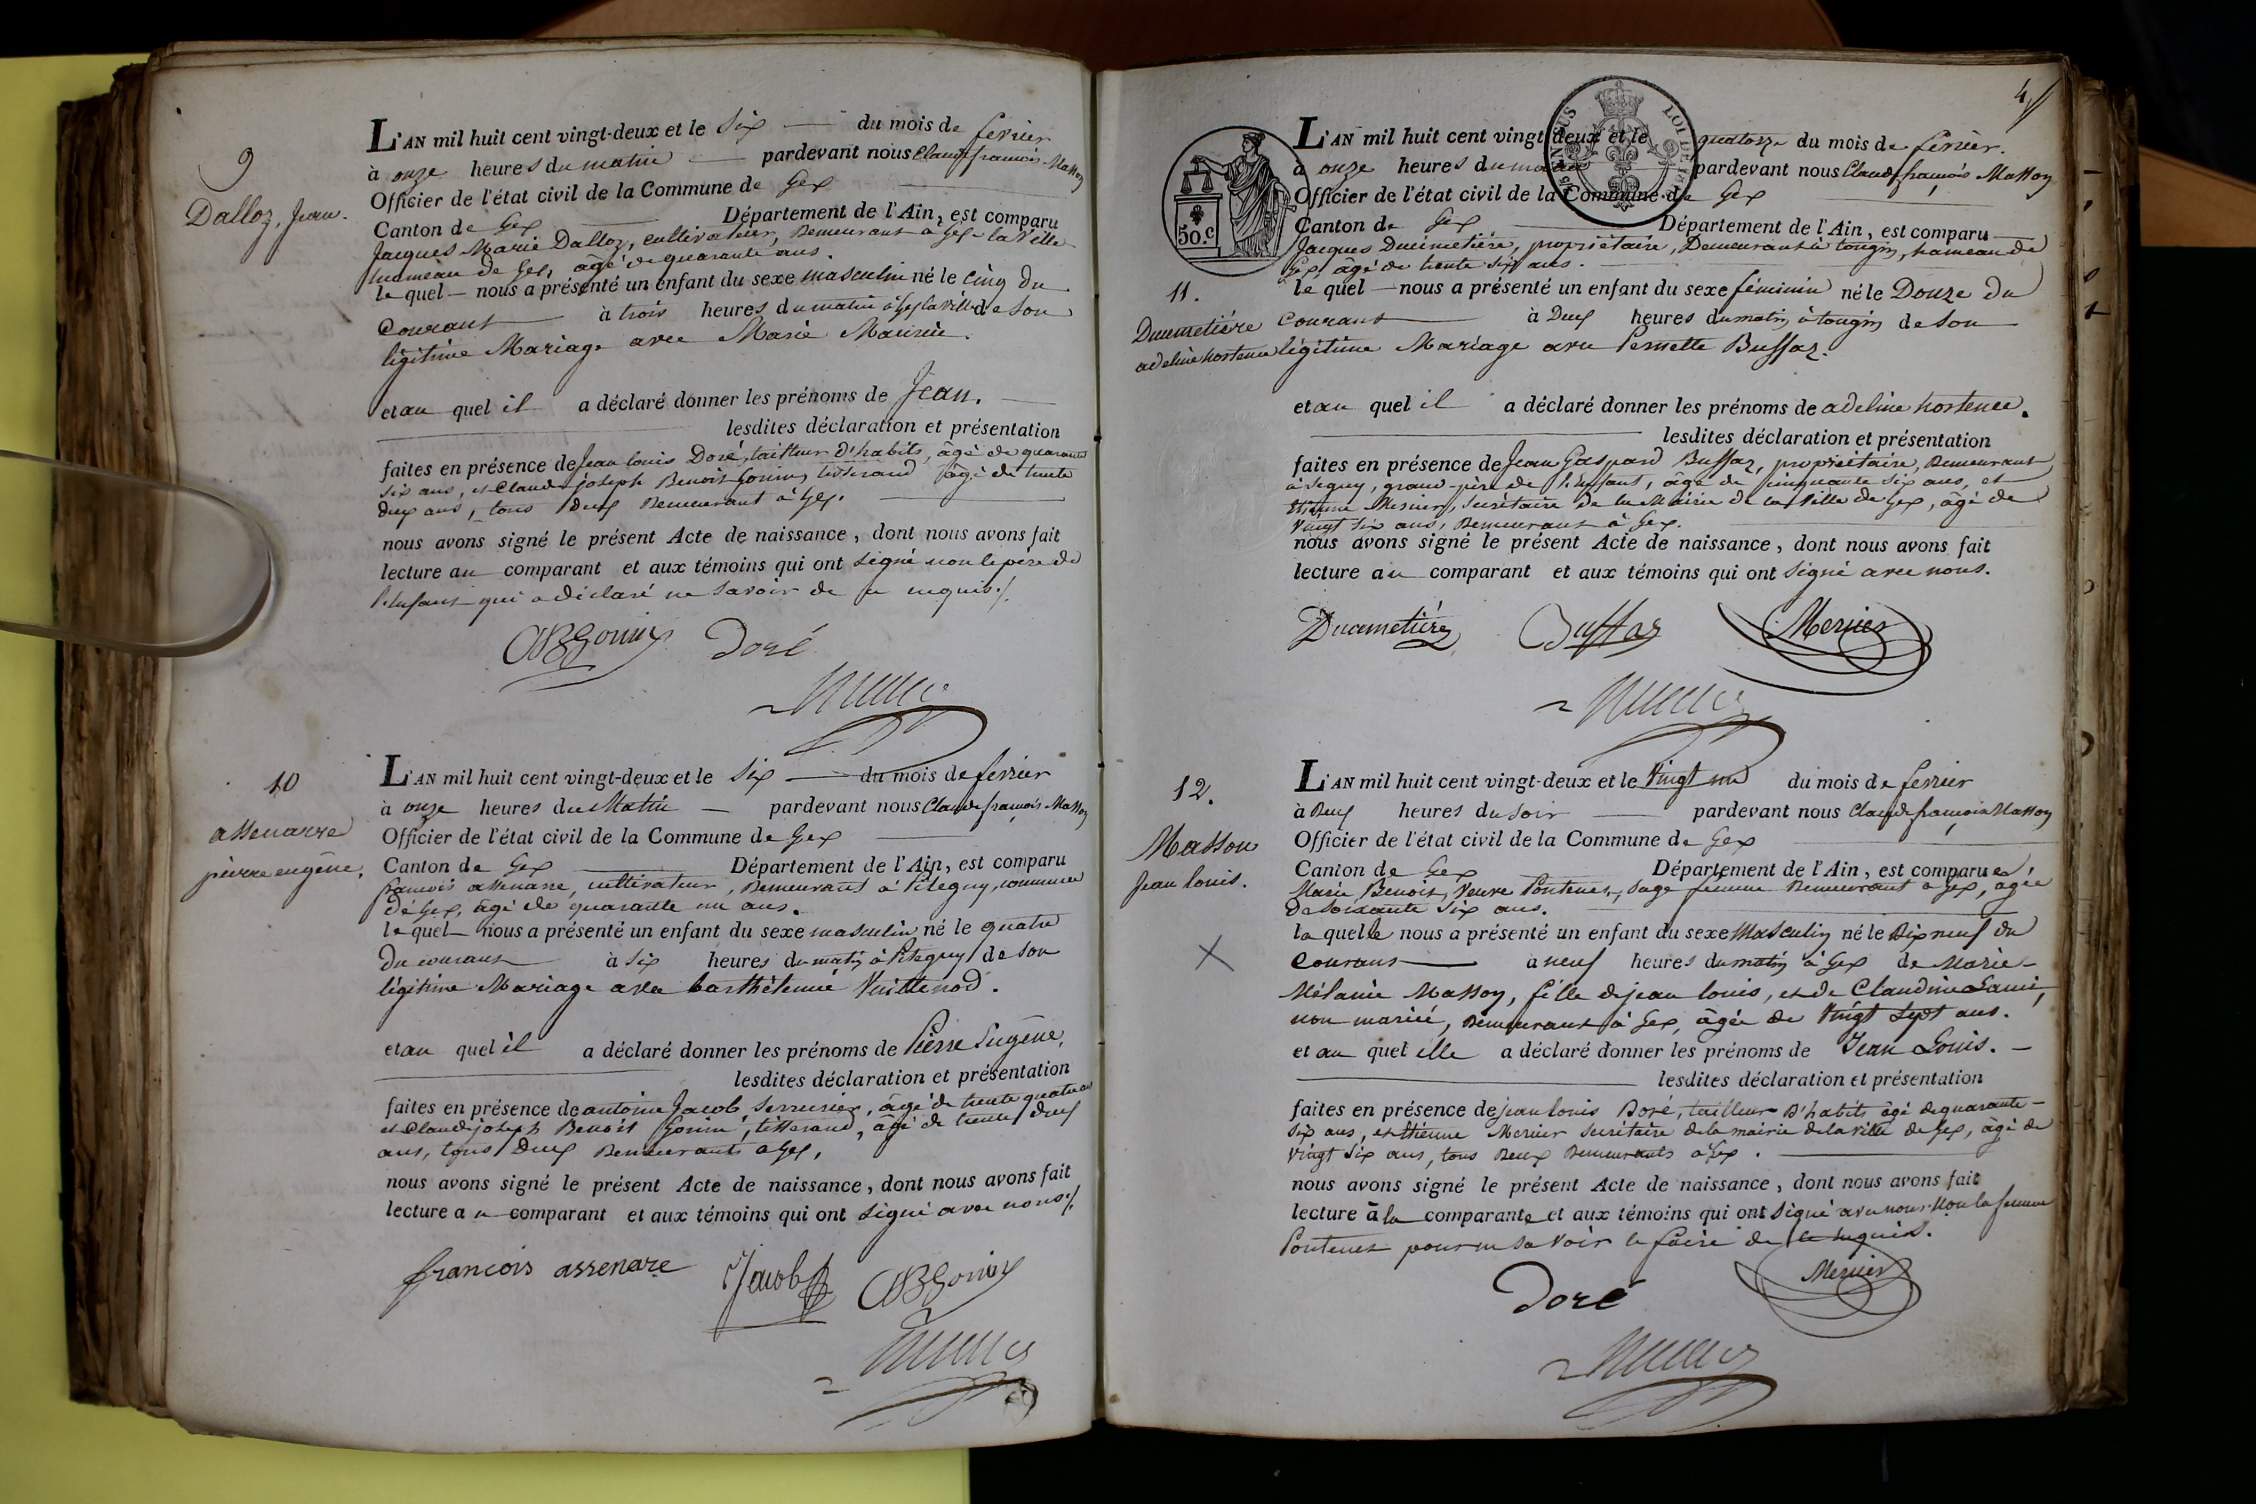 9
Dalloz, Jean.
L'AN mil huit cent vingt-deux et le Six du mois de fevrier
à onze heures du matin pardevant nous Claude françois Masson
Officier de l'état civil de la Commune de Gex
Canton de Gex Département de l'Ain, est comparu
Jacques Marie Dalloz, cultivateur, Demeurant à Gex-la Ville
hameau de Gex, âgé de quarante ans.
le quel nous a présenté un enfant du sexe masculin né le cinq du
Courant à trois heures du matin à Gex la ville de Son
légitime Mariage avec Marie
et au quel il a déclaré donner les prénoms de Jean.
lesdites déclaration et présentation
faites en présence de Jean louis Doré, tailleur d'habits, âgé de quarante
six ans, et Claude joseph Benoit Gonin, tisserand âgé de trente
deux ans, tous Deux Demeurant à Gex.
nous avons signé le présent Acte de naissance, dont nous avons fait
lecture au comparant et aux témoins qui ont signé non le père de
l'enfant qui a déclaré ne savoir de ce requis.
Doré
10
assenarre
pierre eugène.
L'AN mil huit cent vingt-deux et le Six du mois de fevrier
à onze heures du Matin pardevant nous Claude françois Masson
Officier de l'état civil de la Commune de Gex
Canton de Gex Département de l'Ain, est comparu
françois assenarre, cultivateur, Demeurant à Pitegny, commune
de Gex, âgé de quarante un ans.
le quel nous a présenté un enfant du sexe masculin né le quatre
du courant à six heures du matin à Pitegny de son
légitime Mariage avec barthélemie Vuillenod.
et au quel il a déclaré donner les prénoms de Pierre Eugène,
lesdites déclaration et présentation
faites en présence de antoine Jacob, Serrurier, âgé de trente quatre ans
et Claude joseph Benoit Gonin, tisserand, âgé de trente deux
ans, tous Deux Demeurants à Gex.
nous avons signé le présent Acte de naissance, dont nous avons fait
lecture au comparant et aux témoins qui ont signé avec nous.
françois assenare Jacob
4
50.c
11.
Ducimetière
adeline hortence
L'AN mil huit cent vingt-deux et le quatorze du mois de fevrier.
à onze heures du matin pardevant nous Claude françois Masson
Officier de l'état civil de la Commune de Gex
Canton de Gex Département de l'Ain, est comparu
Jacques Ducimetière, propriétaire, Demeurant à tougin, hameau de
Gex, âgé de trente six ans.
le quel nous a présenté un enfant du sexe féminin né le Douze du
Courant à Deux heures du matin à tougin de Son
légitime Mariage avec Pernette Buffaz.
et au quel il a déclaré donner les prénoms de adeline hortence.
lesdites déclaration et présentation
faites en présence de Jean Gaspard Buffaz, propriétaire, Demeurant
à Segny, grand-père de l'enfant, âgé de cinquante six ans, et
Etienne Mernier, secrétaire de la Mairie de la Ville de Gex, âgé de
Vingt six ans, Demeurant à Gex.
nous avons signé le présent Acte de naissance, dont nous avons fait
lecture au comparant et aux témoins qui ont signé avec nous.
Ducimetière Buffaz Mernier
12.
Masson
Jean louis.
L'AN mil huit cent vingt-deux et le Vingt un du mois de fevrier
à Deux heures du soir pardevant nous Claude françois Masson
Officier de l'état civil de la Commune de Gex
Canton de Gex Département de l'Ain, est comparue
Marie Benoit, Veuve Pontenet, sage femme Demeurant à Gex, âgée
de soixante six ans.
la quelle nous a présenté un enfant du sexe Masculin né le Dix neuf du
Courant à neuf heures du matin à Gex de Marie
Mélanie Masson, fille de jean louis, et de Claudine Lami,
non mariée, Demeurant à Gex, âgée de Vingt Sept ans.
et au quel elle a déclaré donner les prénoms de Jean Louis.
lesdites déclaration et présentation
faites en présence de jean louis Doré, tailleur D'habits âgé de quarante
six ans, et Etienne Mernier secrétaire de la mairie de la ville de Gex, âgé de
Vingt six ans, tous Deux Demeurants à Gex.
nous avons signé le présent Acte de naissance, dont nous avons fait
lecture à la comparante et aux témoins qui ont signé avec nous Non la femme
Pontenet pour ne savoir le faire de ce requise.
Doré Mernier